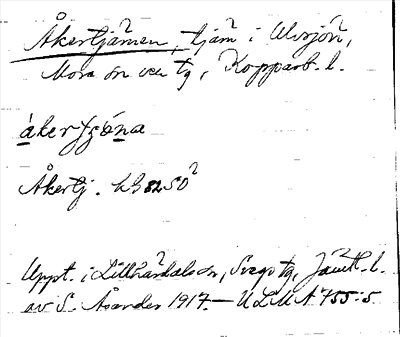 Åkertjärnen, tjärn i Älvsjön,
Mora sn och tg, Kopparb. l.
åkertjǫ́na
Åkertj. LG 82 SO
Uppt. i Lillhärdals sn, Svegs tg, Jämtl. l.
av S. Åsander 1917. — ULMA 755:5